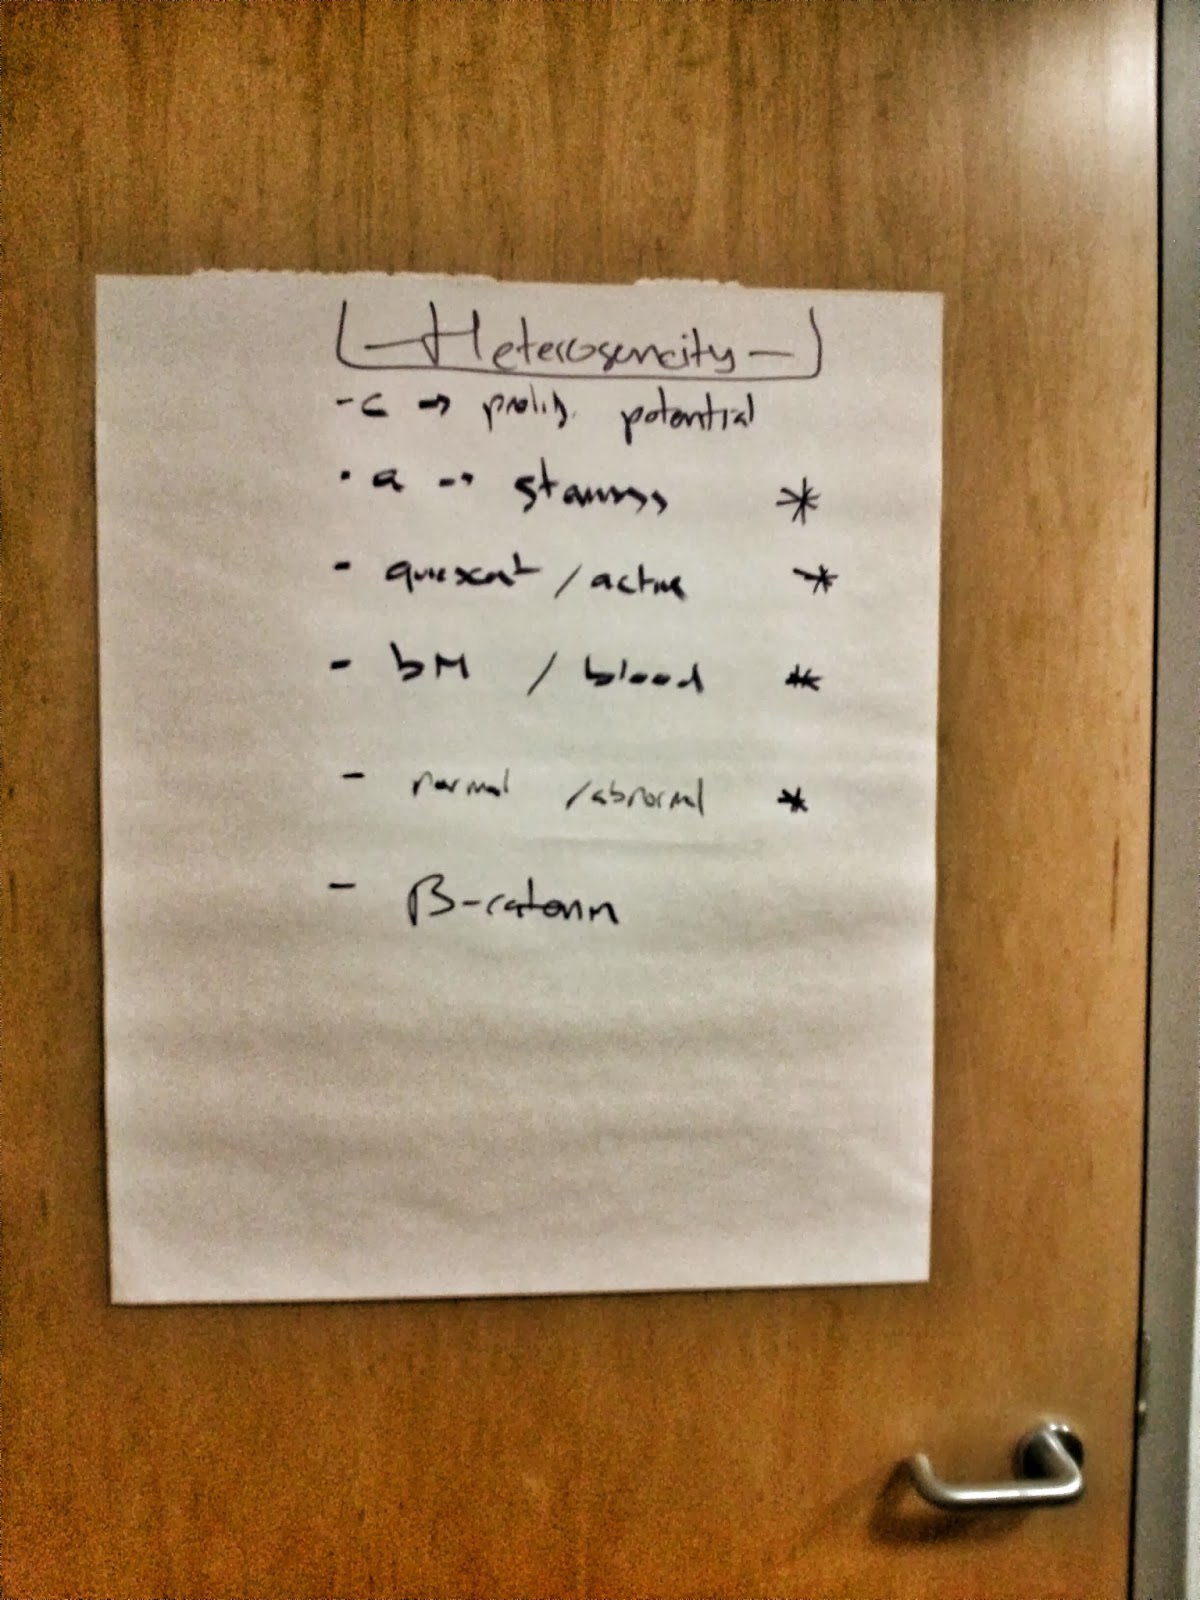 - Heterogeneity -
- c → prolif. potential
· a → stemness *
- quiescent / active *
- bM / blood *
- normal / abnormal *
- β-catenin